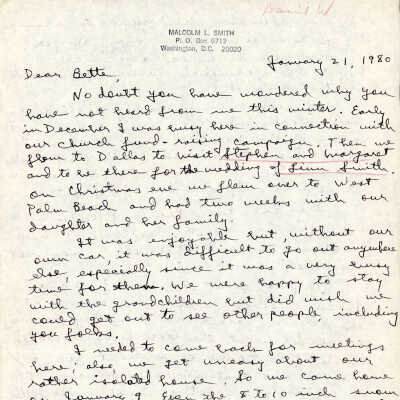 MALCOLM L. SMITH
P. O. Box 6712
Washington, D.C. 20020
January 21, 1980
Dear Bette,
No doubt you have wondered why you
have not heard from me this winter. Early
in December I was busy here in connection with
our Church fund-raising campaign. Then we
flew to Dallas to visit Stephen and Margaret
and to be there for the wedding of Linn Smith.
On Christmas eve we flew over to West
Palm Beach and had two weeks with our
daughter and her family.
It was enjoyable but, without our
own car, it was difficult to go out anywhere
else, especially since it was a very busy
time for them. We were happy to stay
with the grandchildren but did wish we
could get out to see other people, including
you folks.
I needed to come back for meetings
here; also, we get uneasy about our
rather isolated house. So we came home
January 9. Even the 8 to 10 inch snow